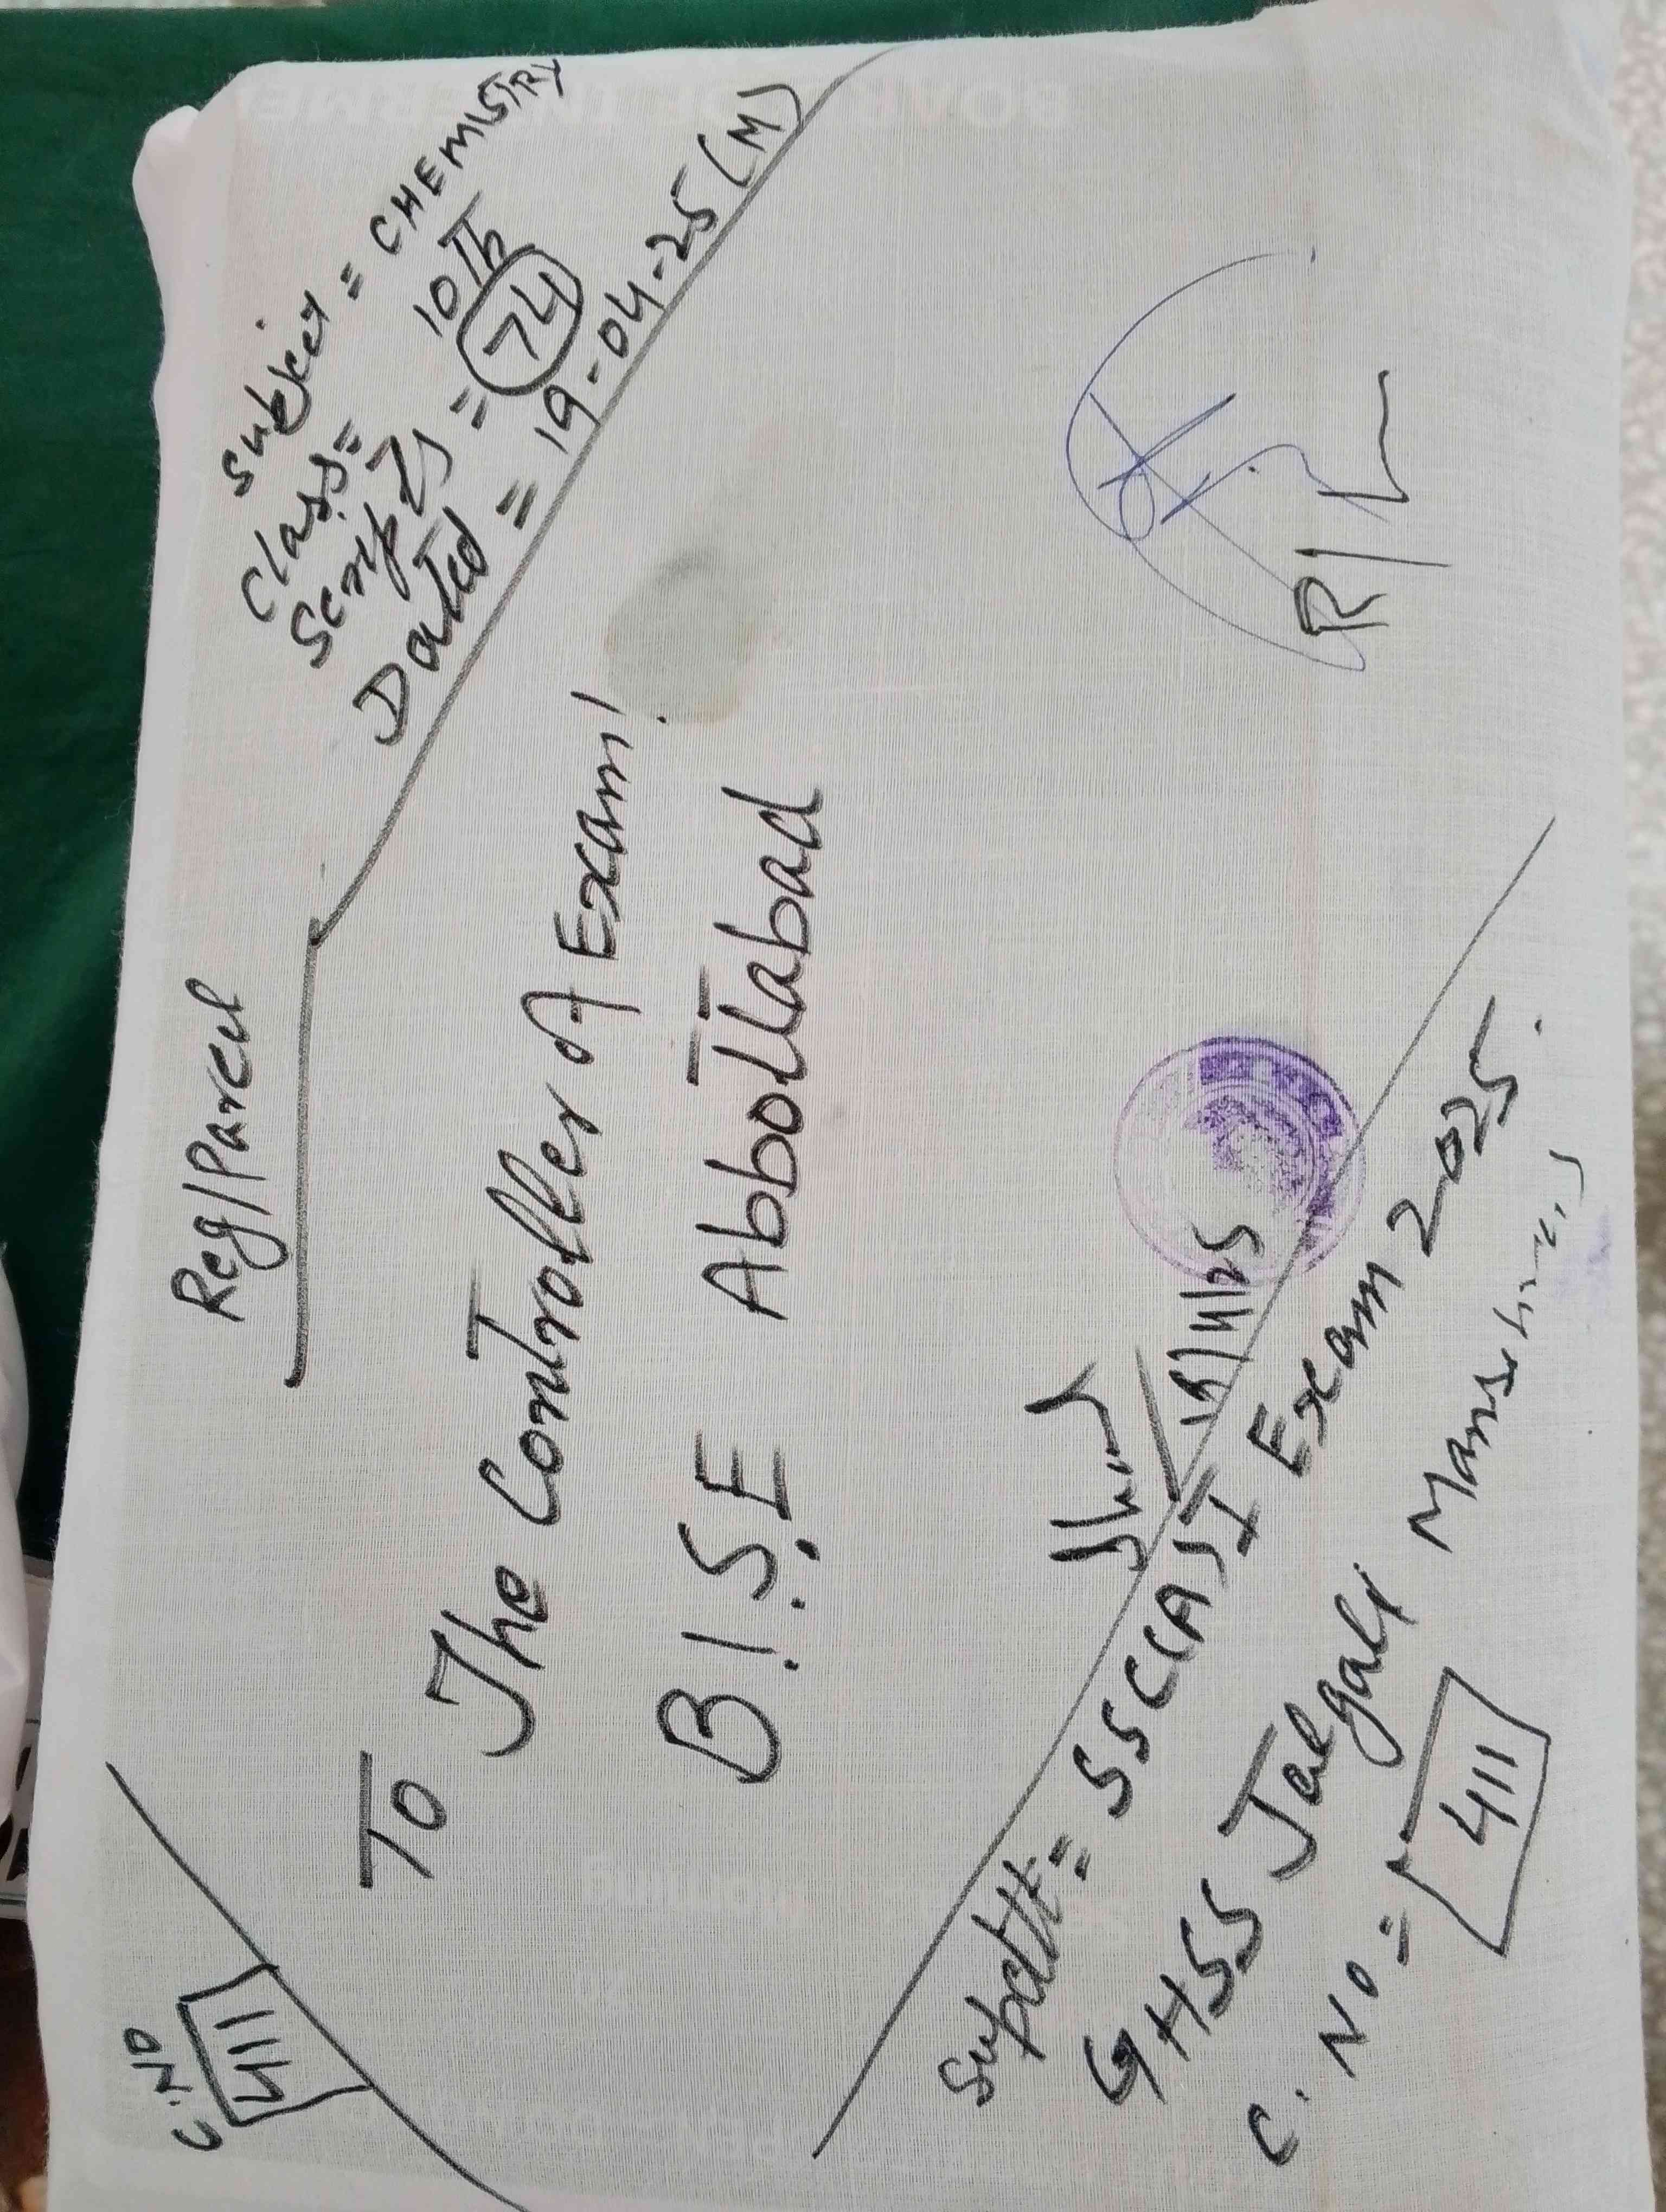 C.NO
411
Reg/Parcel
Subject = CHEMISTRY
Class = 10Th
Scripts = 74
Dated = 19-04-25 (M)
To
The Controller of Exam!
B.I.S.E Abbottabad
19/4/25
R/L
Supdtt = SSC(A) I Exam 2025.
GHSS Jalgali Mansehra
C.No = 411